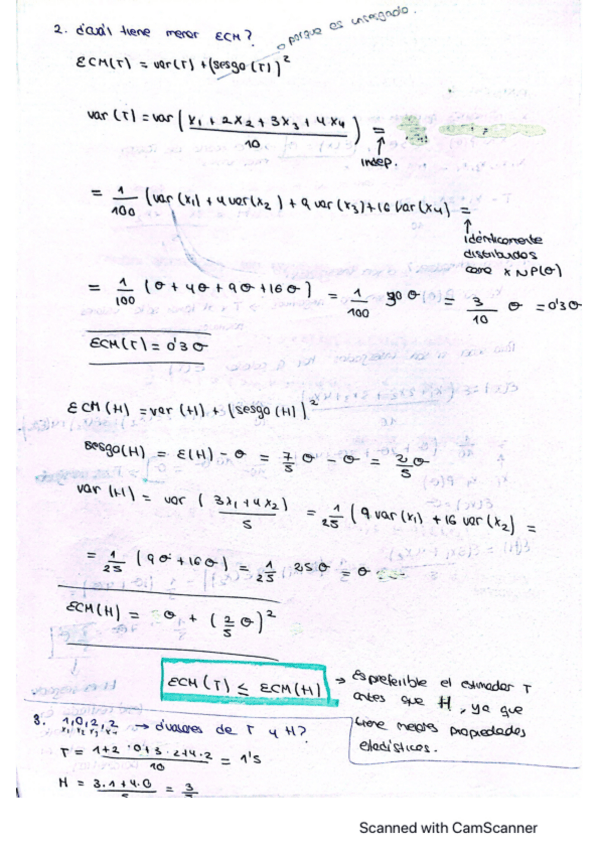 2. ¿cuál tiene menor ECM? → porque es insesgado.
ECM(T) = var(T) + (sesgo(T))²
var(T) = var( (x₁ + 2x₂ + 3x₃ + 4x₄) / 10 ) =
indep.
= 1/100 (var(x₁) + 4 var(x₂) + 9 var(x₃) + 16 var(x₄)) =
idénticamente
distribuidos
como x ~ P(θ)
= 1/100 (θ + 4θ + 9θ + 16θ) = 1/100 30θ = 3/10 θ = 0'3θ
ECM(T) = 0'3θ
ECM(H) = var(H) + (sesgo(H))²
sesgo(H) = E(H) - θ = 7/5 θ - θ = 2/5 θ
var(H) = var( (3x₁ + 4x₂) / 5 ) = 1/25 (9 var(x₁) + 16 var(x₂)) =
= 1/25 (9θ + 16θ) = 1/25 25θ = θ
ECM(H) = θ + (2/5 θ)²
ECM(T) ≤ ECM(H) → Es preferible el estimador T
antes que H, ya que
tiene mejores propiedades
estadísticas.
3. 1,0,2,2 → ¿valores de T y H?
x₁ x₂ x₃ x₄
T = (1+2·0+3·2+4·2) / 10 = 1'5
H = (3·1+4·0) / 5 = 3/5
Scanned with CamScanner